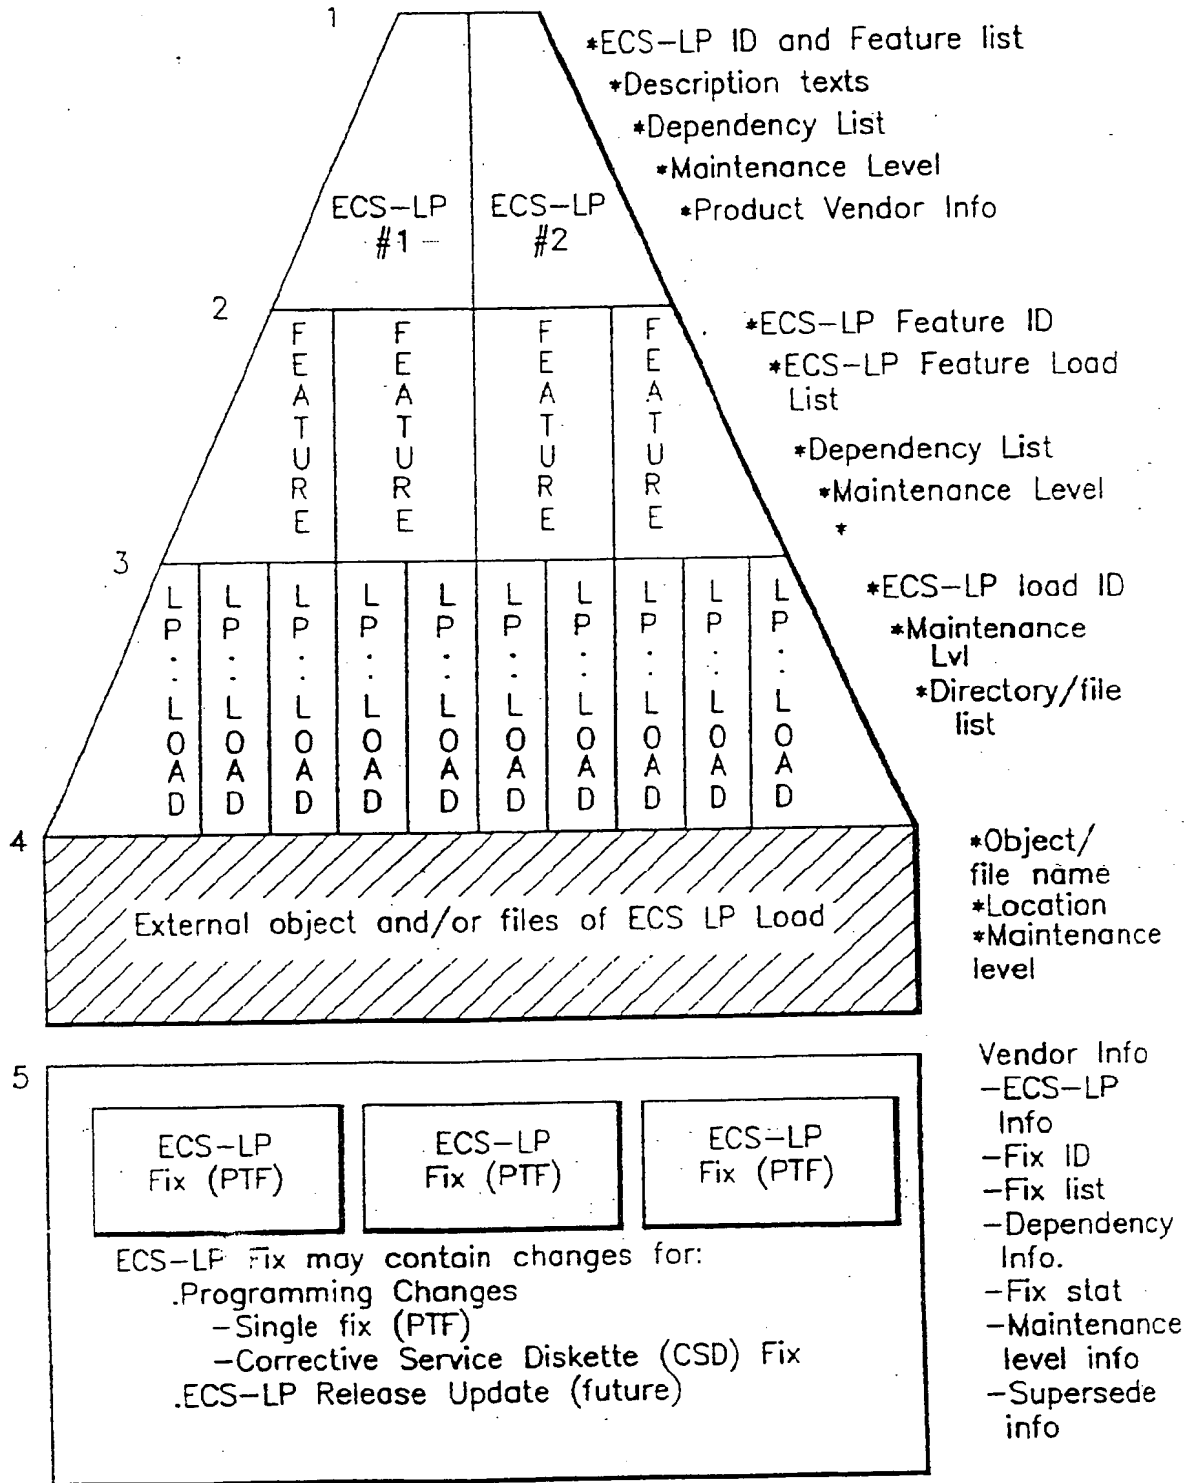 1
*ECS-LP ID and Feature list
*Description texts
*Dependency List
*Maintenance Level
*Product Vendor Info
ECS-LP
#1
ECS-LP
#2
2
FEATURE
FEATURE
FEATURE
FEATURE
*ECS-LP Feature ID
*ECS-LP Feature Load
List
*Dependency List
*Maintenance Level
*
3
LP..LOAD
LP..LOAD
LP..LOAD
LP..LOAD
LP..LOAD
LP..LOAD
LP..LOAD
LP..LOAD
LP..LOAD
LP..LOAD
*ECS-LP load ID
*Maintenance
Lvl
*Directory/file
list
4
External object and/or files of ECS LP Load
*Object/
file name
*Location
*Maintenance
level
5
ECS-LP
Fix (PTF)
ECS-LP
Fix (PTF)
ECS-LP
Fix (PTF)
ECS-LP Fix may contain changes for:
.Programming Changes
-Single fix (PTF)
-Corrective Service Diskette (CSD) Fix
.ECS-LP Release Update (future)
Vendor Info
-ECS-LP
Info
-Fix ID
-Fix list
-Dependency
Info.
-Fix stat
-Maintenance
level info
-Supersede
info